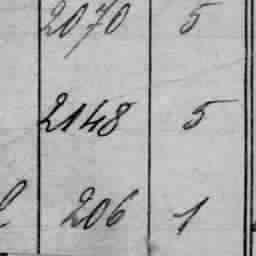 2070 5
2148 5
206 1